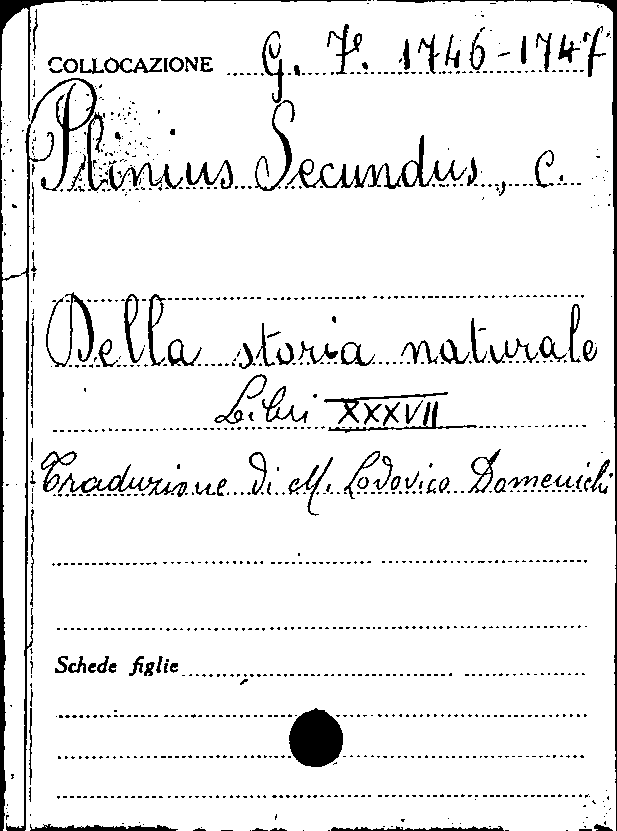 COLLOCAZIONE G. 7e. 1746-1747
Plinius Secundus, C.
Della storia naturale
Libri XXXVII
Traduzione di M. Lodovico Domenichi
Schede figlie